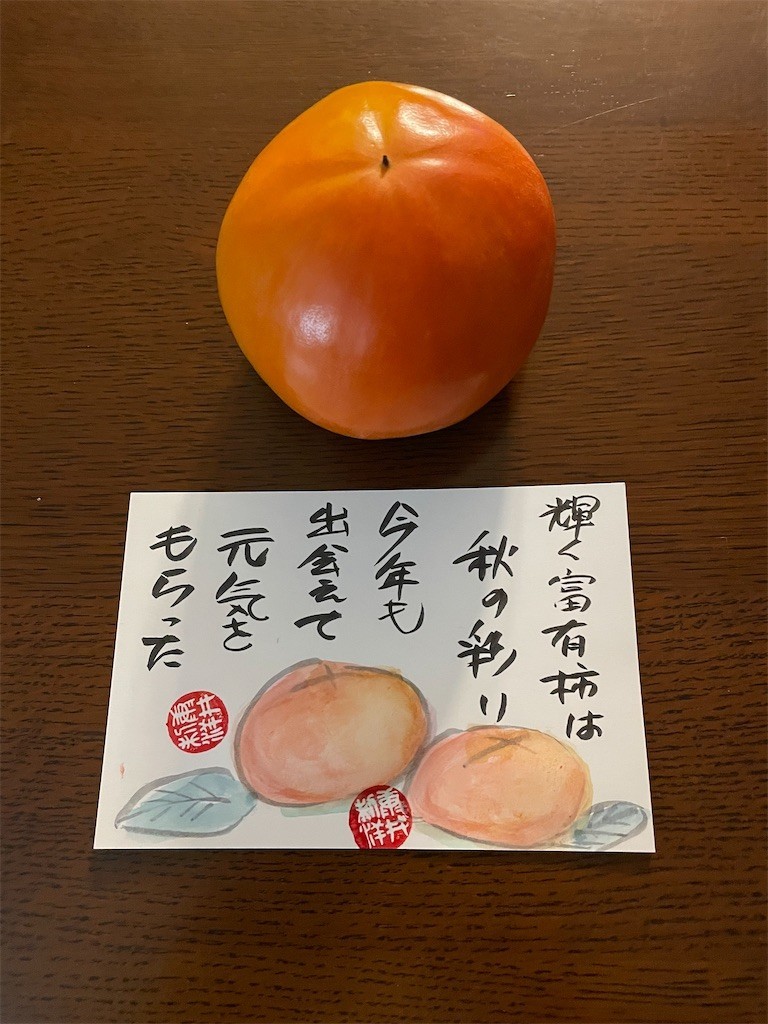 輝く富有柿は
秋の彩り
今年も
出会えて
元気を
もらった